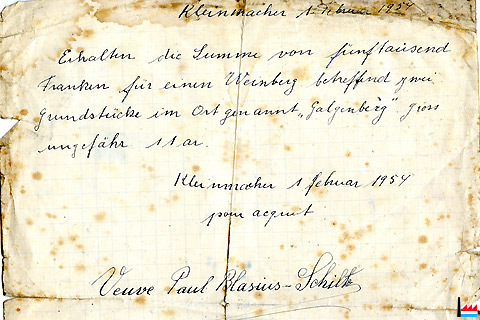 Kleinmacher 1 Februar 1954
Erhalten die Summe von fünftausend
Franken für einen Weinberg betreffend zwei
Grundstücke im Ort genannt „Galgenberg" gross
ungefähr 11 ar.
Kleinmacher 1 februar 1954
pour acquit
Veuve Paul Blasius-Schiltz